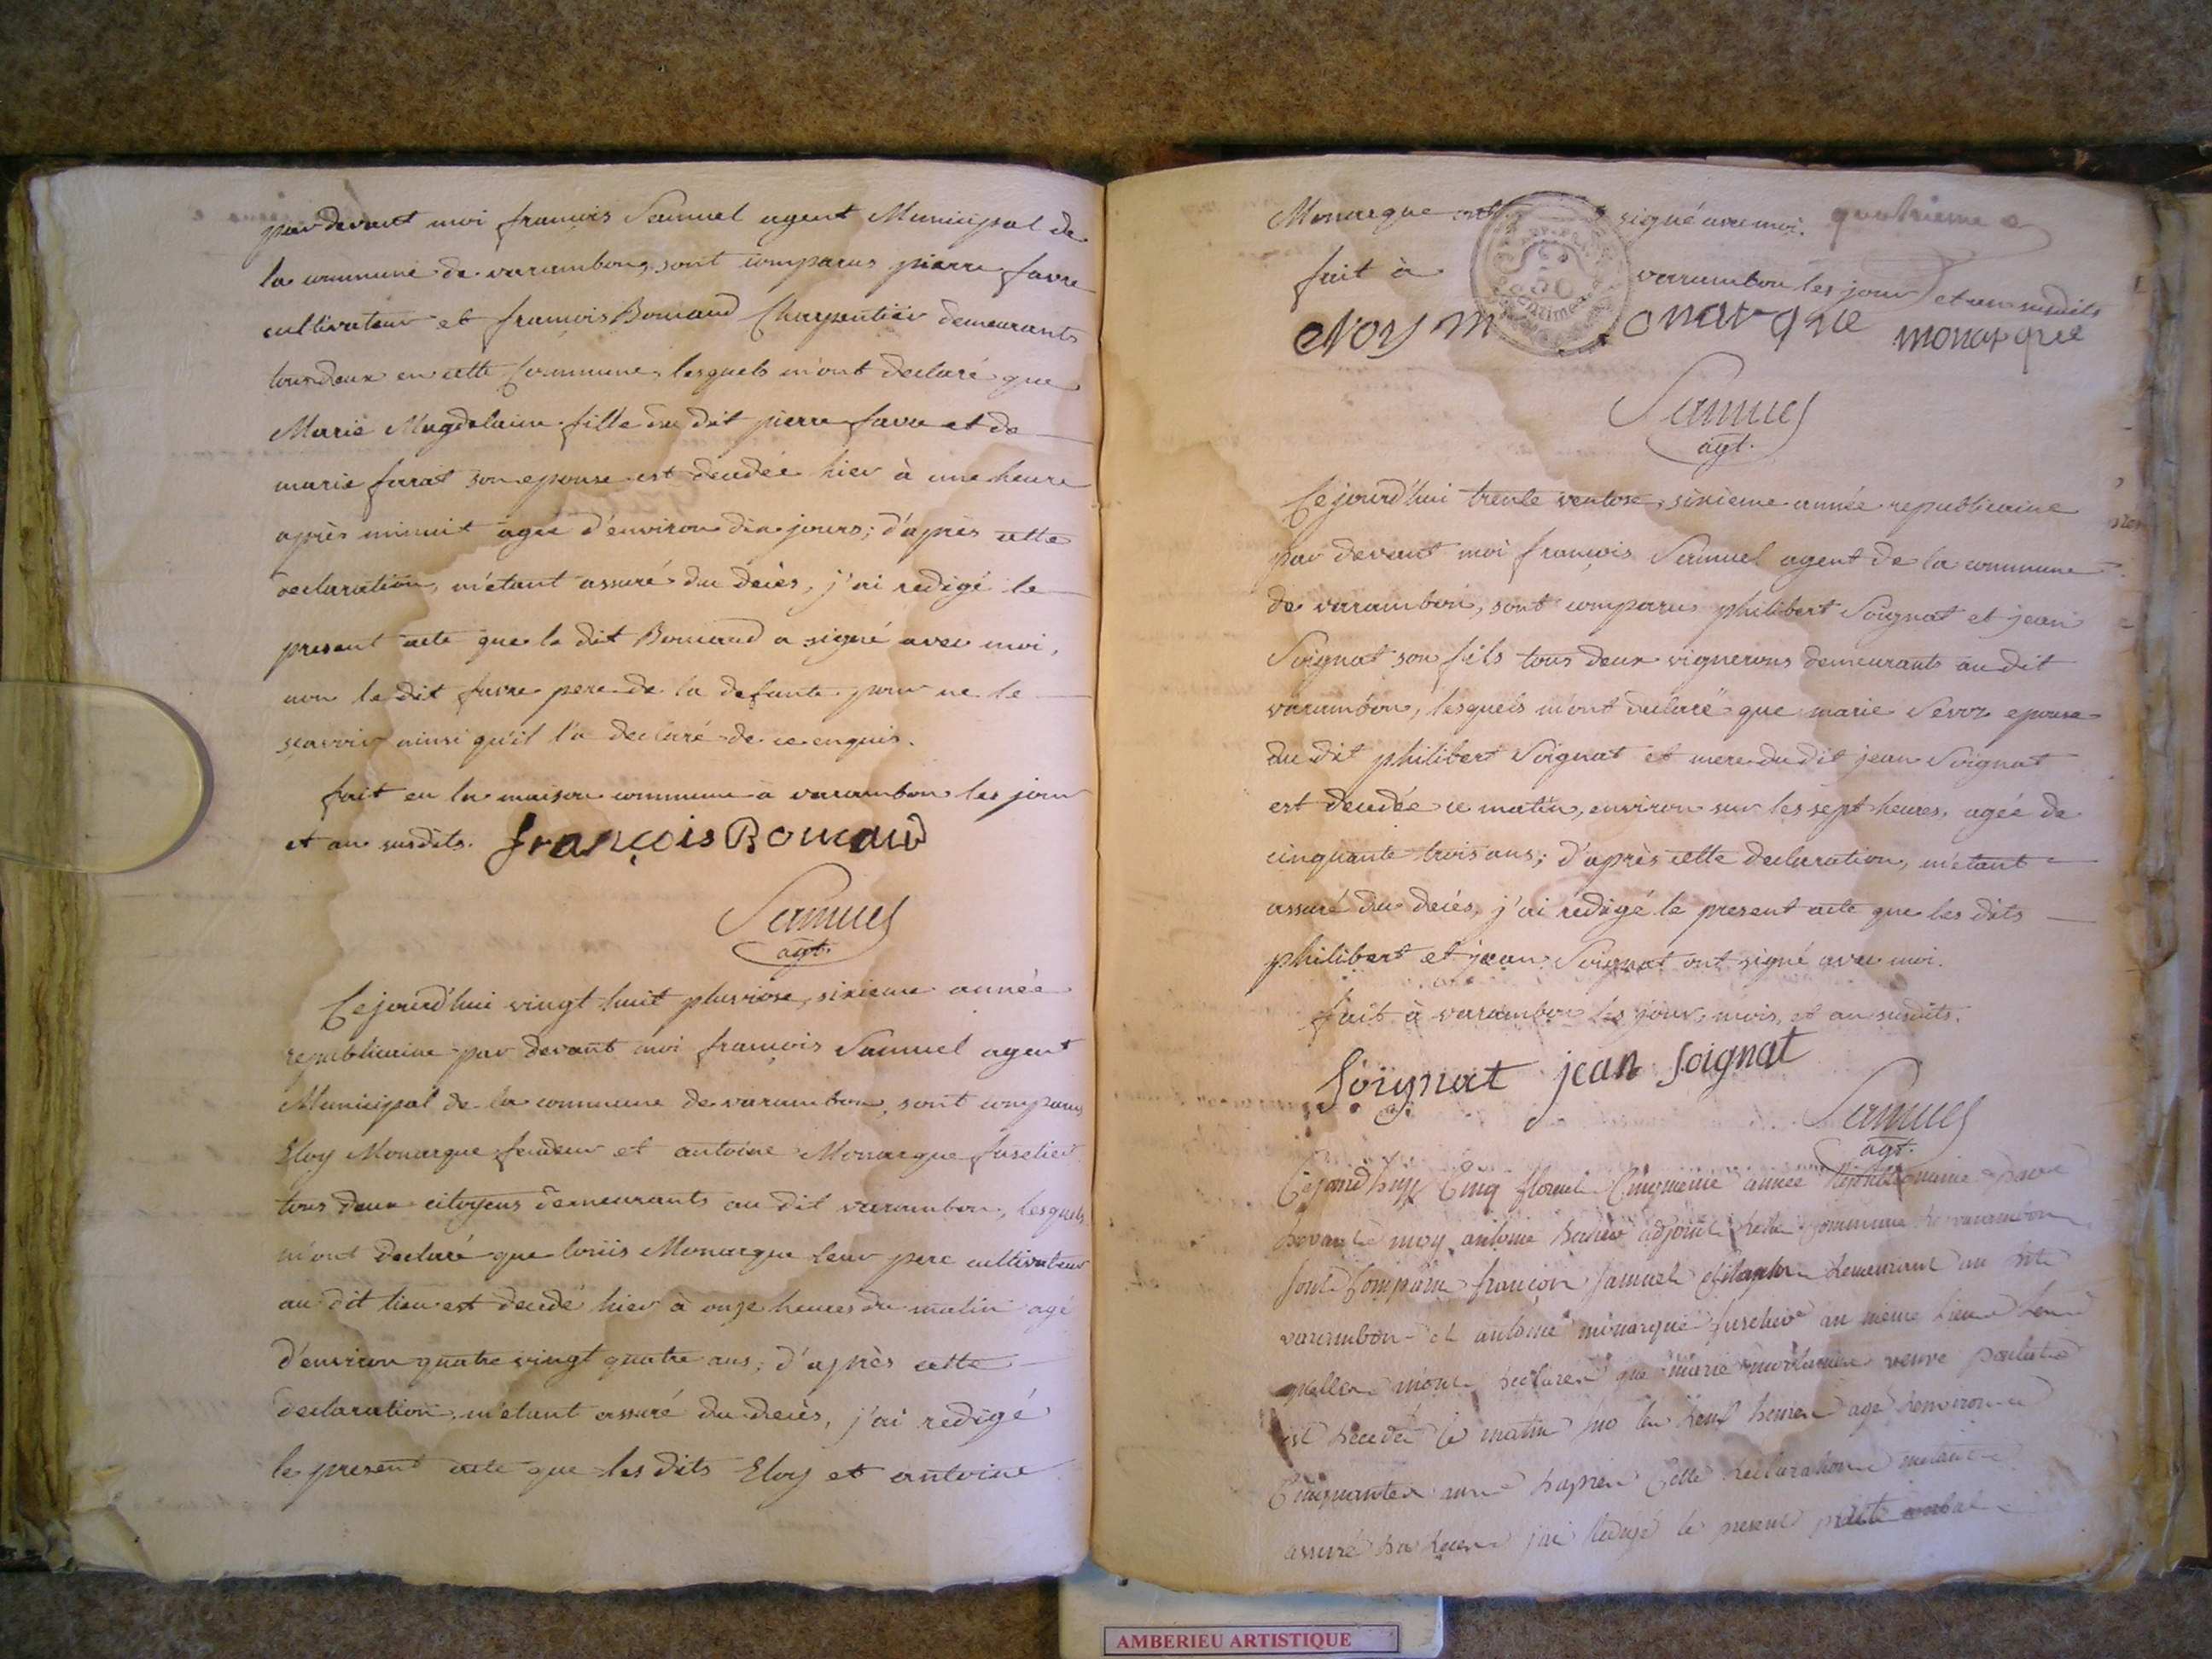 par devant moi françois Samuel agent Municipal de
la commune de varambon, sont comparus pierre favre
cultivateur et françois Bouvand Charpentier demeurants
tous deux en cette Commune, lesquels m'ont declaré que
Marie Magdelaine fille du dit pierre favre et de
marie farat son epouse est decedée hier à une heure
après minuit agée d'environ dix jours; d'après cette
declaration, m'etant assuré du decès, j'ai redigé le
present acte que le dit Bouvand a signé avec moi,
non le dit favre pere de la defunte pour ne le
sçavoir ainsi qu'il l'a declaré de ce enquis.
fait en la maison commune à varambon les jour
et an susdits. françois Bouvand
Samuel
agt.
Cejourd'hui vingt huit pluviose, sixieme année
republicaine par devant moi françois Samuel agent
Municipal de la commune de varambon, sont comparus
Eloy Monarque et antoine Monarque fuselier
tous deux citoyens demeurants au dit varambon, lesquels
m'ont declaré que louis Monarque leur pere cultivateur
au dit lieu est decedé hier à onze heures du matin agé
d'environ quatre vingt quatre ans; d'après cette
declaration, m'etant assuré du decès, j'ai redigé
le present acte que les dits Eloy et antoine
Monarque ont signé avec moi. quatrieme
fait à varambon les jour et an susdits
50 centimes
eloy monarque monarque
Samuel
agt.
Cejourd'hui trente ventose, sixieme année republicaine
par devant moi françois Samuel agent de la commune
de varambon, sont comparus philibert Soignat et jean
Soignat son fils tous deux vignerons demeurants au dit
varambon, lesquels m'ont declaré que marie epouse
du dit philibert Soignat et mere du dit jean Soignat
est decedée ce matin, environ sur les sept heures, agée de
cinquante trois ans; d'après cette declaration, m'etant
assuré du decès, j'ai redigé le present acte que les dits
philibert et jean Soignat ont signé avec moi.
fait à varambon les jour, mois, et an susdits.
Soignat jean Soignat
Samuel
agt.
Cejourd'huy Cinq floreal Cinquieme année Republicaine par
devant moy antoine adjoint de la Commune de varambon
sont Comparu françois Samuel demeurant au dit
varambon et antoine monarque fuselier au meme lieu
mont declaré que marie veuve
est decedée ce matin sur les neuf heures agé denviron
Cinquante dapres Cette declaration metant
assuré du deces jai redigé le present acte
AMBERIEU ARTISTIQUE